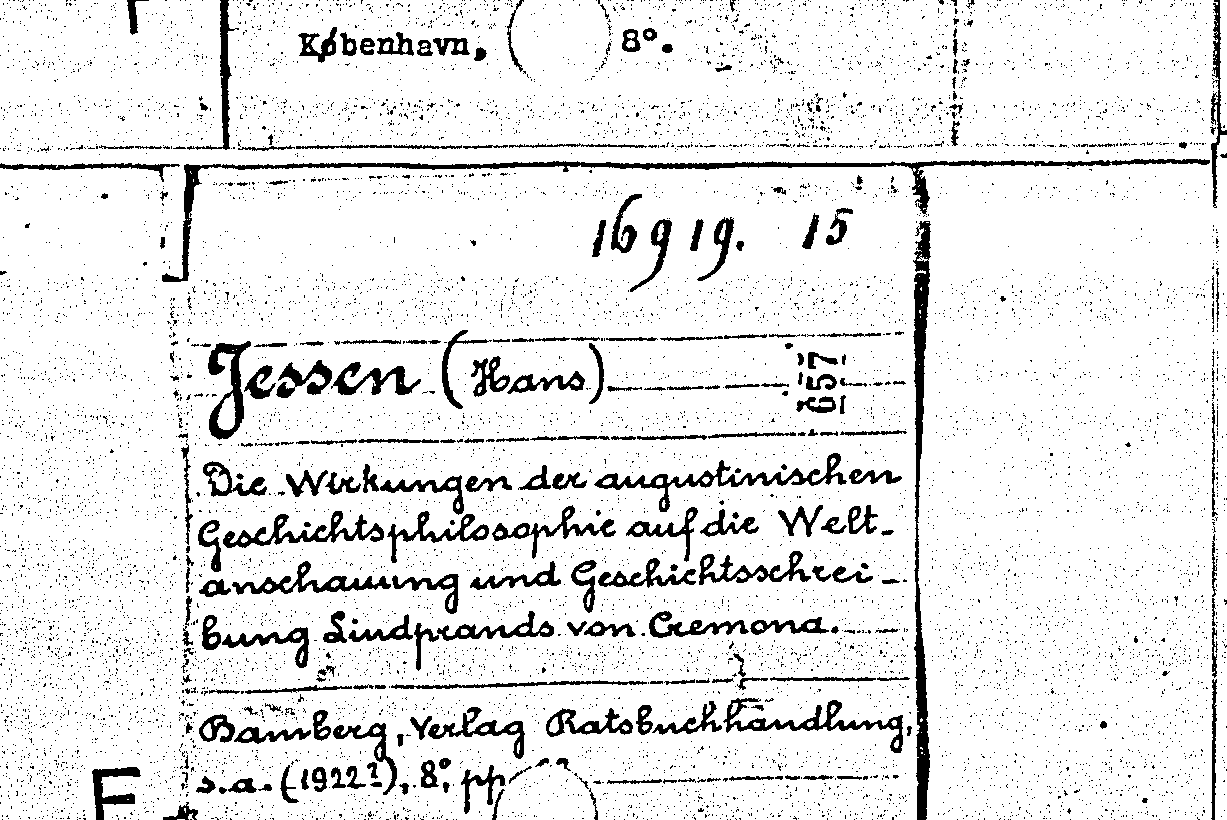 København, 8°.
16919. 15
Jessen (Hans)
657
Die Wirkungen der augustinischen
Geschichtsphilosophie auf die Welt-
anschauung und Geschichtsschrei-
bung Liudprands von Cremona.
Bamberg, Verlag Ratsbuchhandlung,
s.a. (1922?), 8°, pp
F